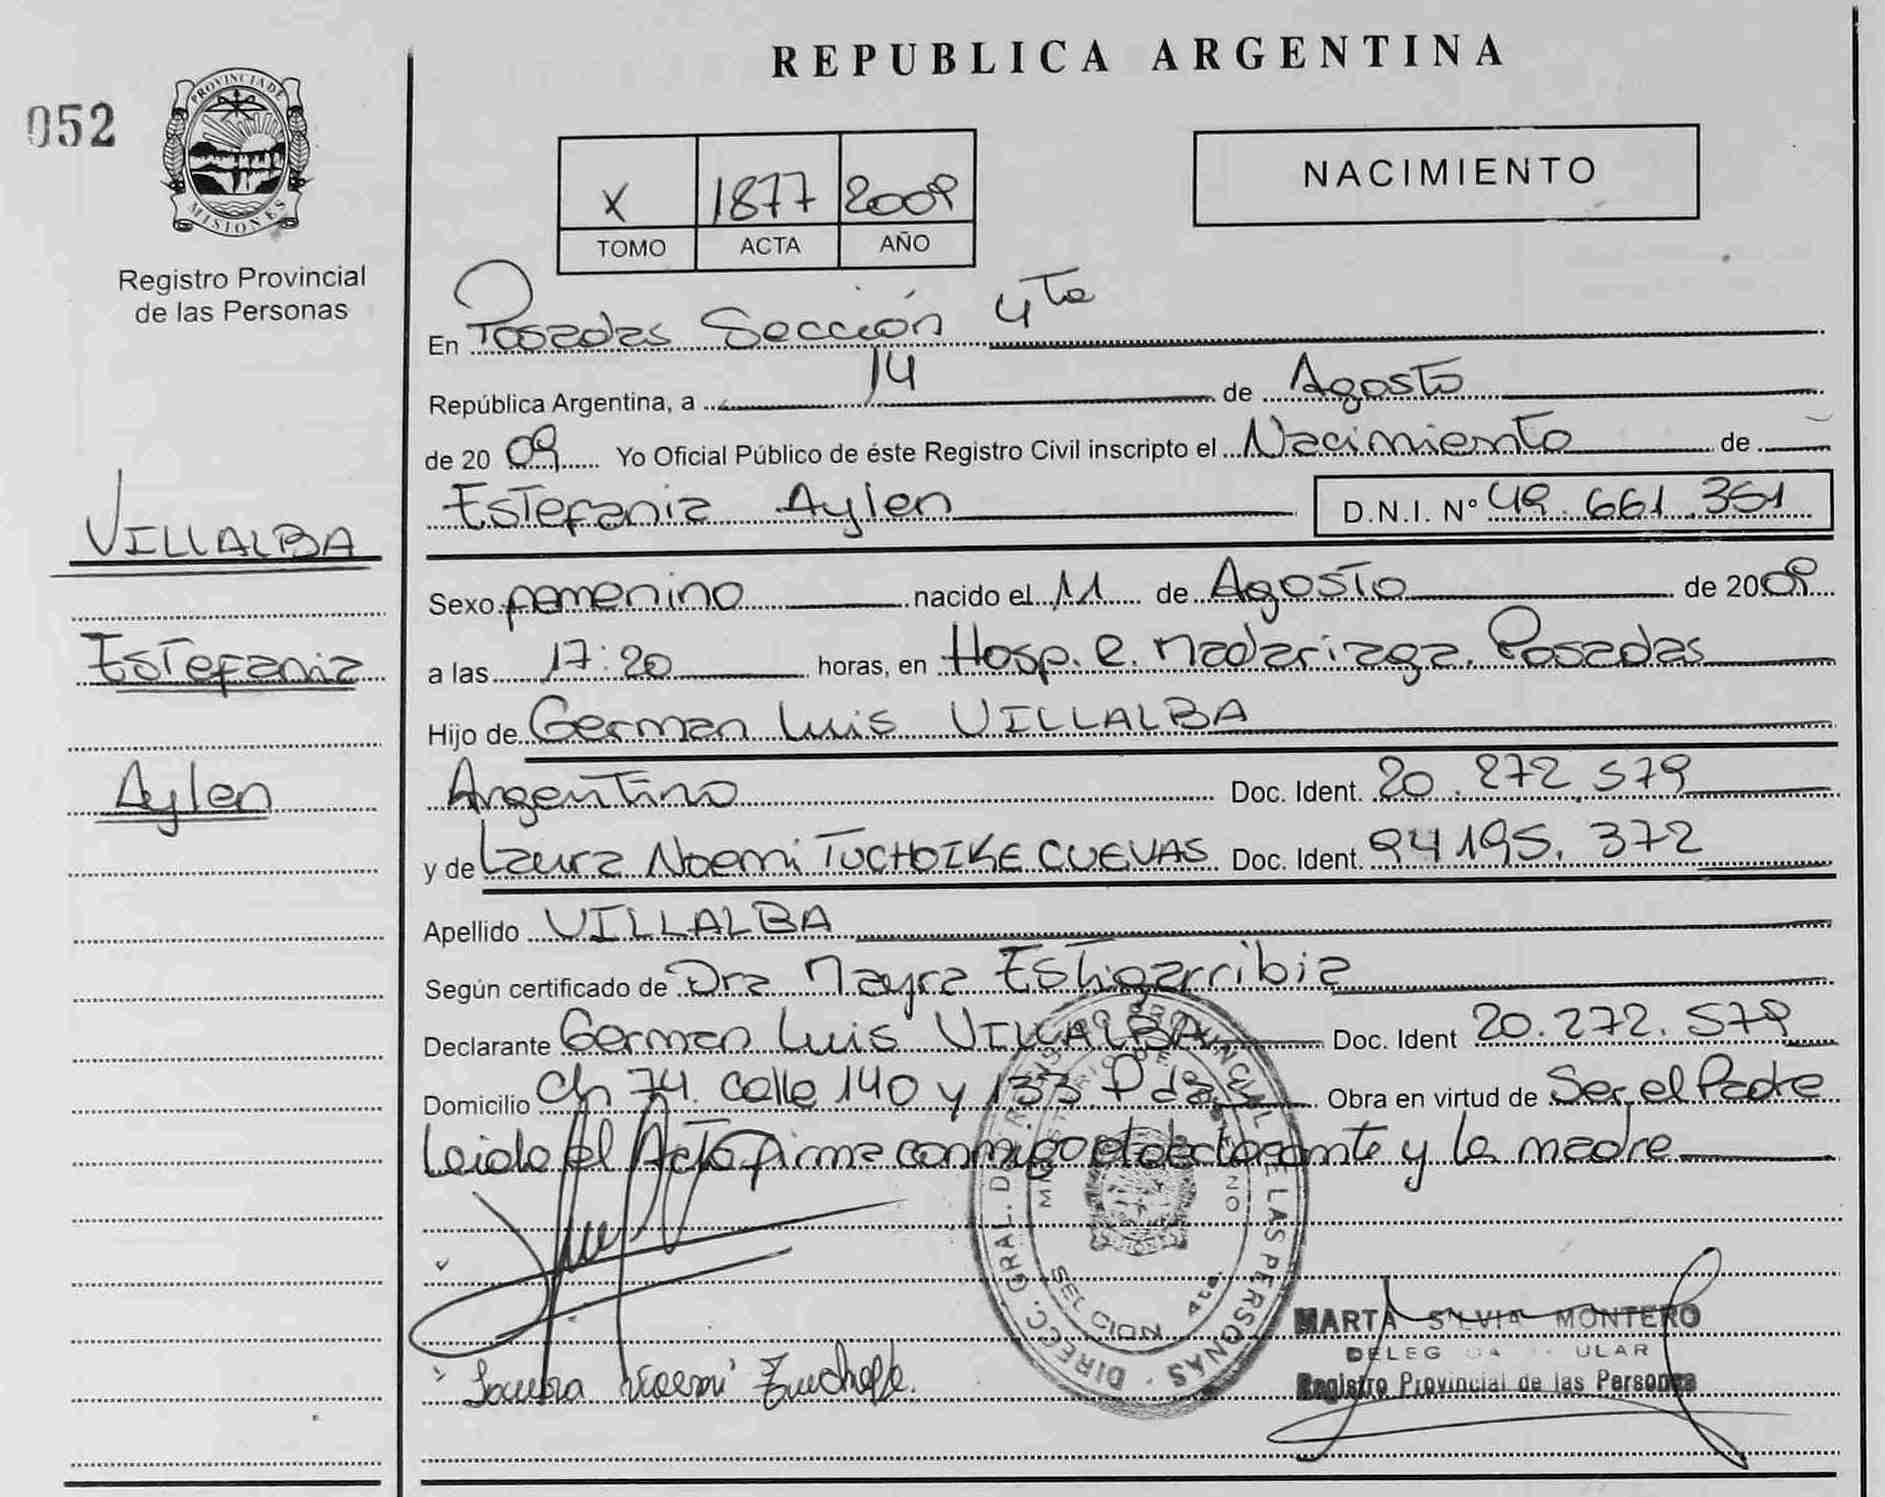 REPUBLICA ARGENTINA
052
PROVINCIA DE MISIONES
Registro Provincial
de las Personas
X 1877 2009
TOMO ACTA AÑO
NACIMIENTO
En Posadas Sección 4ta
República Argentina, a 14 de Agosto
de 2009 Yo Oficial Público de éste Registro Civil inscripto el Nacimiento de
Estefania Aylen D.N.I. Nº 49.661.351
VILLALBA
Estefania
Aylen
Sexo femenino nacido el 11 de Agosto de 2009
a las 17:20 horas, en Hosp. R. Madariaga. Posadas
Hijo de German Luis VILLALBA
Argentino Doc. Ident. 20.272.579
y de Laura Noemi CUEVAS Doc. Ident. 94195.372
Apellido VILLALBA
Según certificado de Dra Mayra Estigarribia
Declarante German Luis VILLALBA Doc. Ident 20.272.579
Domicilio Ch 74. calle 140 y 133. Pdas Obra en virtud de Ser el Padre
Leido el Acta firma conmigo el declarante y la madre
DIRECC. GRAL. DE REGISTRO PROVINCIAL DE LAS PERSONAS
SECCION 4ta.
MARTA SILVIA MONTERO
Registro Provincial de las Personas
Laura Noemi